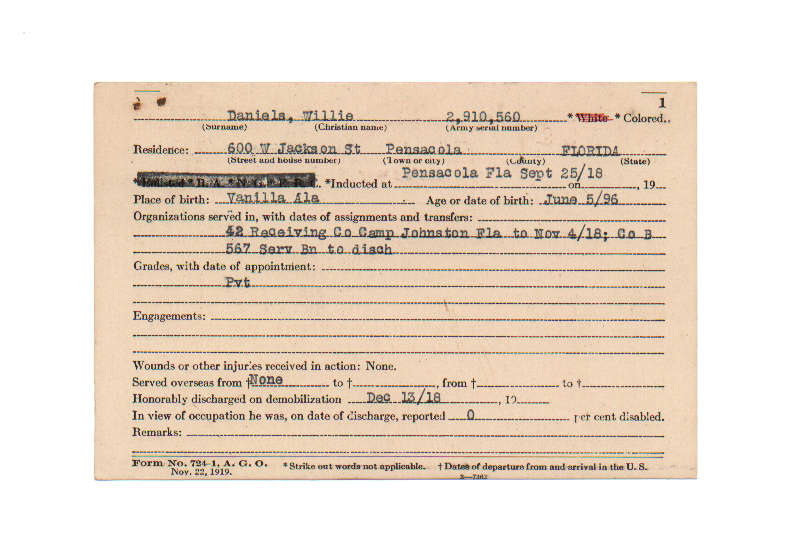 1
Daniels, Willie 2,910,560 * White * Colored.
(Surname) (Christian name) (Army serial number)
Residence: 600 W Jackson St Pensacola FLORIDA
(Street and house number) (Town or city) (County) (State)
Pensacola Fla Sept 25/18
* Enlisted * R. A. * N. G. * E. R. C. * Inducted at on , 19
Place of birth: Vanilla Ala Age or date of birth: June 5/96
Organizations served in, with dates of assignments and transfers:
42 Receiving Co Camp Johnston Fla to Nov 4/18; Co B
567 Serv Bn to disch
Grades, with date of appointment:
Pvt
Engagements:
Wounds or other injuries received in action: None.
Served overseas from † None to † , from † to †
Honorably discharged on demobilization Dec 13/18 , 19
In view of occupation he was, on date of discharge, reported 0 per cent disabled.
Remarks:
Form No. 724-1, A. G. O. * Strike out words not applicable. † Dates of departure from and arrival in the U. S.
Nov. 22, 1919.